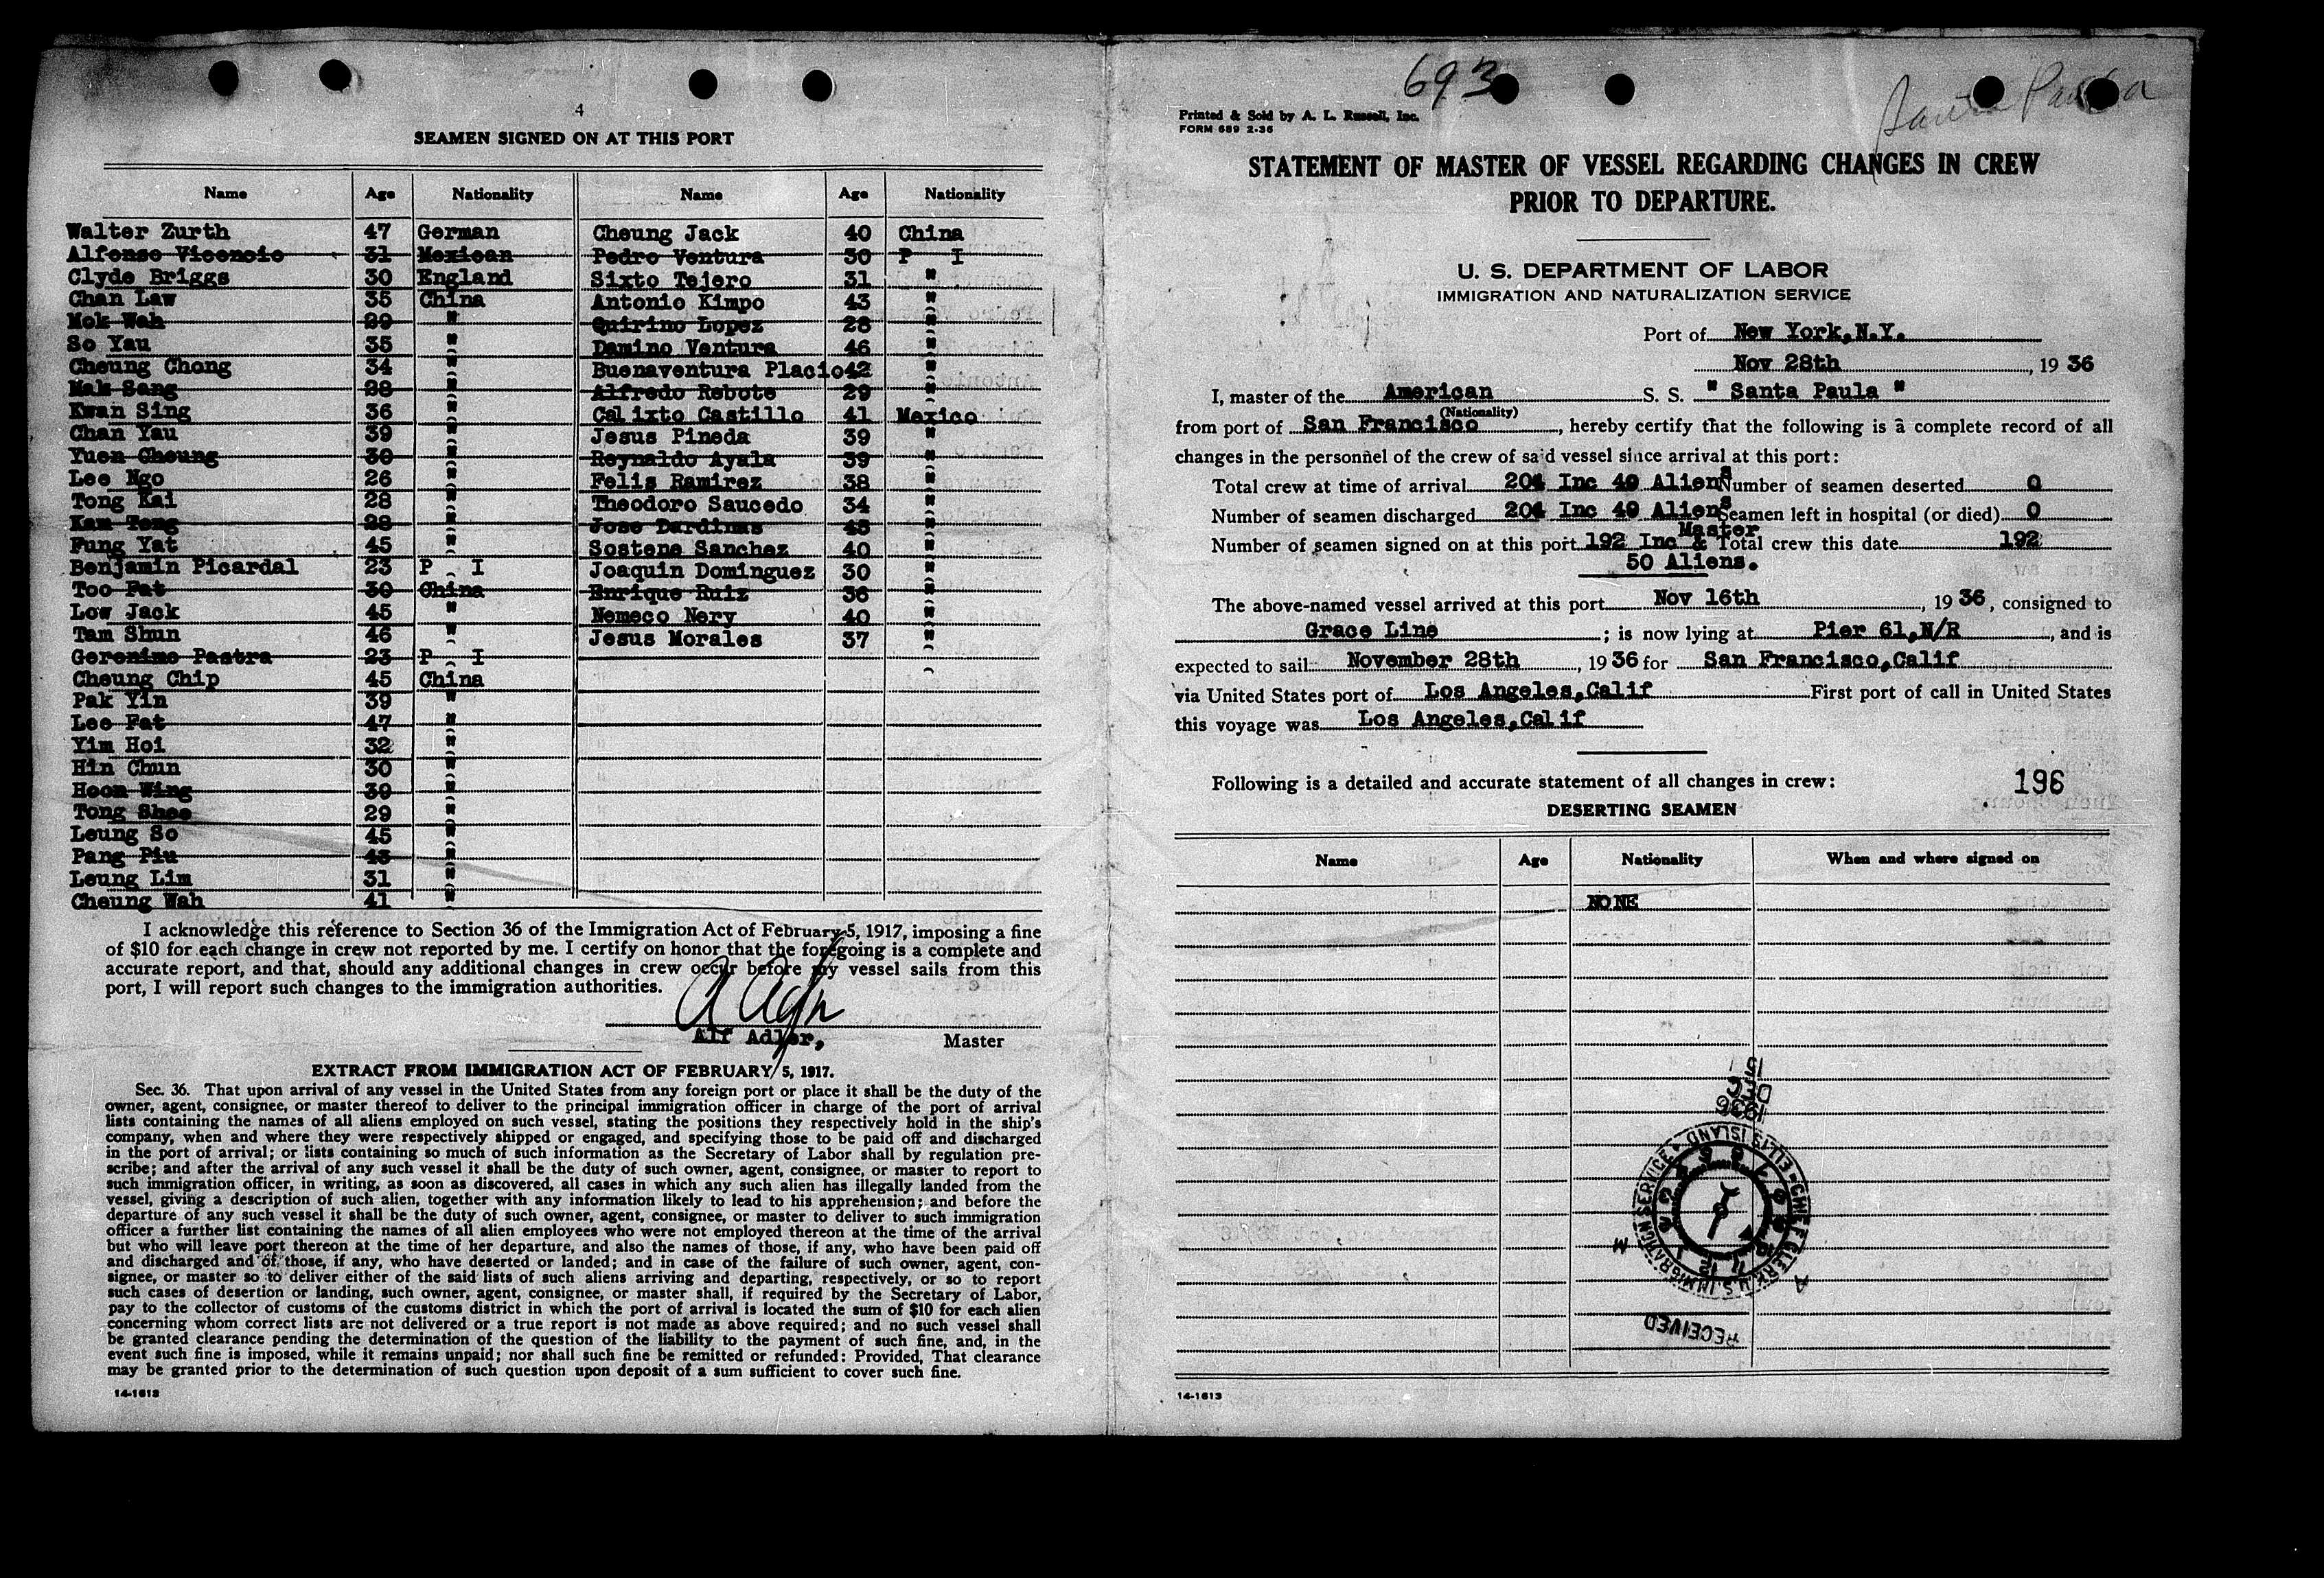 4
SEAMEN SIGNED ON AT THIS PORT
Name Age Nationality Name Age Nationality
Walter Zurth 47 German Cheung Jack 40 China
Alfonso Vicencio 31 Mexican Pedro Ventura 30 P I
Clyde Briggs 30 England Sixto Tejero 31 "
Chan Law 35 China Antonio Kimpo 43 "
Mok Wah 29 " Quirino Lopez 28 "
So Yau 35 " Damino Ventura 46 "
Cheung Chong 34 " Buenaventura Placio 42 "
Mak Sang 28 " Alfredo Rebote 29 "
Kwan Sing 36 " Calixto Castillo 41 Mexico
Chan Yau 39 " Jesus Pineda 39 "
Yuen Cheung 30 " Reynaldo Ayala 39 "
Lee Ngo 26 " Felis Ramirez 38 "
Tong Kai 28 " Theodoro Saucedo 34 "
Kam Tong 28 " Jose Dardinas 45 "
Fung Yat 45 " Sostene Sanchez 40 "
Benjamin Picardal 23 P I Joaquin Dominguez 30 "
Too Fat 30 China Enrique Ruiz 36 "
Low Jack 45 " Nemeco Nery 40 "
Tam Shun 46 " Jesus Morales 37 "
Geronimo Pastra 23 P I
Cheung Chip 45 China
Pak Yin 39 "
Lee Fat 47 "
Yim Hoi 32 "
Hin Chun 30 "
Hoom Wing 39 "
Tong Shee 29 "
Leung So 45 "
Pang Piu 43 "
Leung Lim 31 "
Cheung Wah 41 "
I acknowledge this reference to Section 36 of the Immigration Act of February 5, 1917, imposing a fine
of $10 for each change in crew not reported by me. I certify on honor that the foregoing is a complete and
accurate report, and that, should any additional changes in crew occur before my vessel sails from this
port, I will report such changes to the immigration authorities.
Alf Adler, Master
EXTRACT FROM IMMIGRATION ACT OF FEBRUARY 5, 1917.
Sec. 36. That upon arrival of any vessel in the United States from any foreign port or place it shall be the duty of the
owner, agent, consignee, or master thereof to deliver to the principal immigration officer in charge of the port of arrival
lists containing the names of all aliens employed on such vessel, stating the positions they respectively hold in the ship's
company, when and where they were respectively shipped or engaged, and specifying those to be paid off and discharged
in the port of arrival; or lists containing so much of such information as the Secretary of Labor shall by regulation pre-
scribe; and after the arrival of any such vessel it shall be the duty of such owner, agent, consignee, or master to report to
such immigration officer, in writing, as soon as discovered, all cases in which any such alien has illegally landed from the
vessel, giving a description of such alien, together with any information likely to lead to his apprehension; and before the
departure of any such vessel it shall be the duty of such owner, agent, consignee, or master to deliver to such immigration
officer a further list containing the names of all alien employees who were not employed thereon at the time of the arrival
but who will leave port thereon at the time of her departure, and also the names of those, if any, who have been paid off
and discharged and of those, if any, who have deserted or landed; and in case of the failure of such owner, agent, con-
signee, or master so to deliver either of the said lists of such aliens arriving and departing, respectively, or so to report
such cases of desertion or landing, such owner, agent, consignee, or master shall, if required by the Secretary of Labor,
pay to the collector of customs of the customs district in which the port of arrival is located the sum of $10 for each alien
concerning whom correct lists are not delivered or a true report is not made as above required; and no such vessel shall
be granted clearance pending the determination of the question of the liability to the payment of such fine, and, in the
event such fine is imposed, while it remains unpaid; nor shall such fine be remitted or refunded: Provided, That clearance
may be granted prior to the determination of such question upon deposit of a sum sufficient to cover such fine.
14-1613
693
Santa Paula
Printed & Sold by A. L. Russell, Inc.
FORM 689 2-36
STATEMENT OF MASTER OF VESSEL REGARDING CHANGES IN CREW
PRIOR TO DEPARTURE.
U. S. DEPARTMENT OF LABOR
IMMIGRATION AND NATURALIZATION SERVICE
Port of New York,N.Y.
Nov 28th, 19 36
I, master of the American S. S. " Santa Paula "
(Nationality)
from port of San Francisco, hereby certify that the following is a complete record of all
changes in the personnel of the crew of said vessel since arrival at this port:
Total crew at time of arrival 204 Inc 49 Aliens Number of seamen deserted 0
Number of seamen discharged 204 Inc 49 Aliens Seamen left in hospital (or died) 0
Number of seamen signed on at this port 192 Inc Master & Total crew this date 192
50 Aliens.
The above-named vessel arrived at this port Nov 16th, 19 36, consigned to
Grace Line; is now lying at Pier 61,N/R, and is
expected to sail November 28th, 19 36 for San Francisco,Calif
via United States port of Los Angeles,Calif First port of call in United States
this voyage was Los Angeles,Calif
Following is a detailed and accurate statement of all changes in crew: 196
DESERTING SEAMEN
Name Age Nationality When and where signed on
NONE
1936
DEC
15
U.S. IMMIGRATION SERVICE • ELLIS ISLAND • CHIEF CLERK
A M
RECEIVED
14-1613